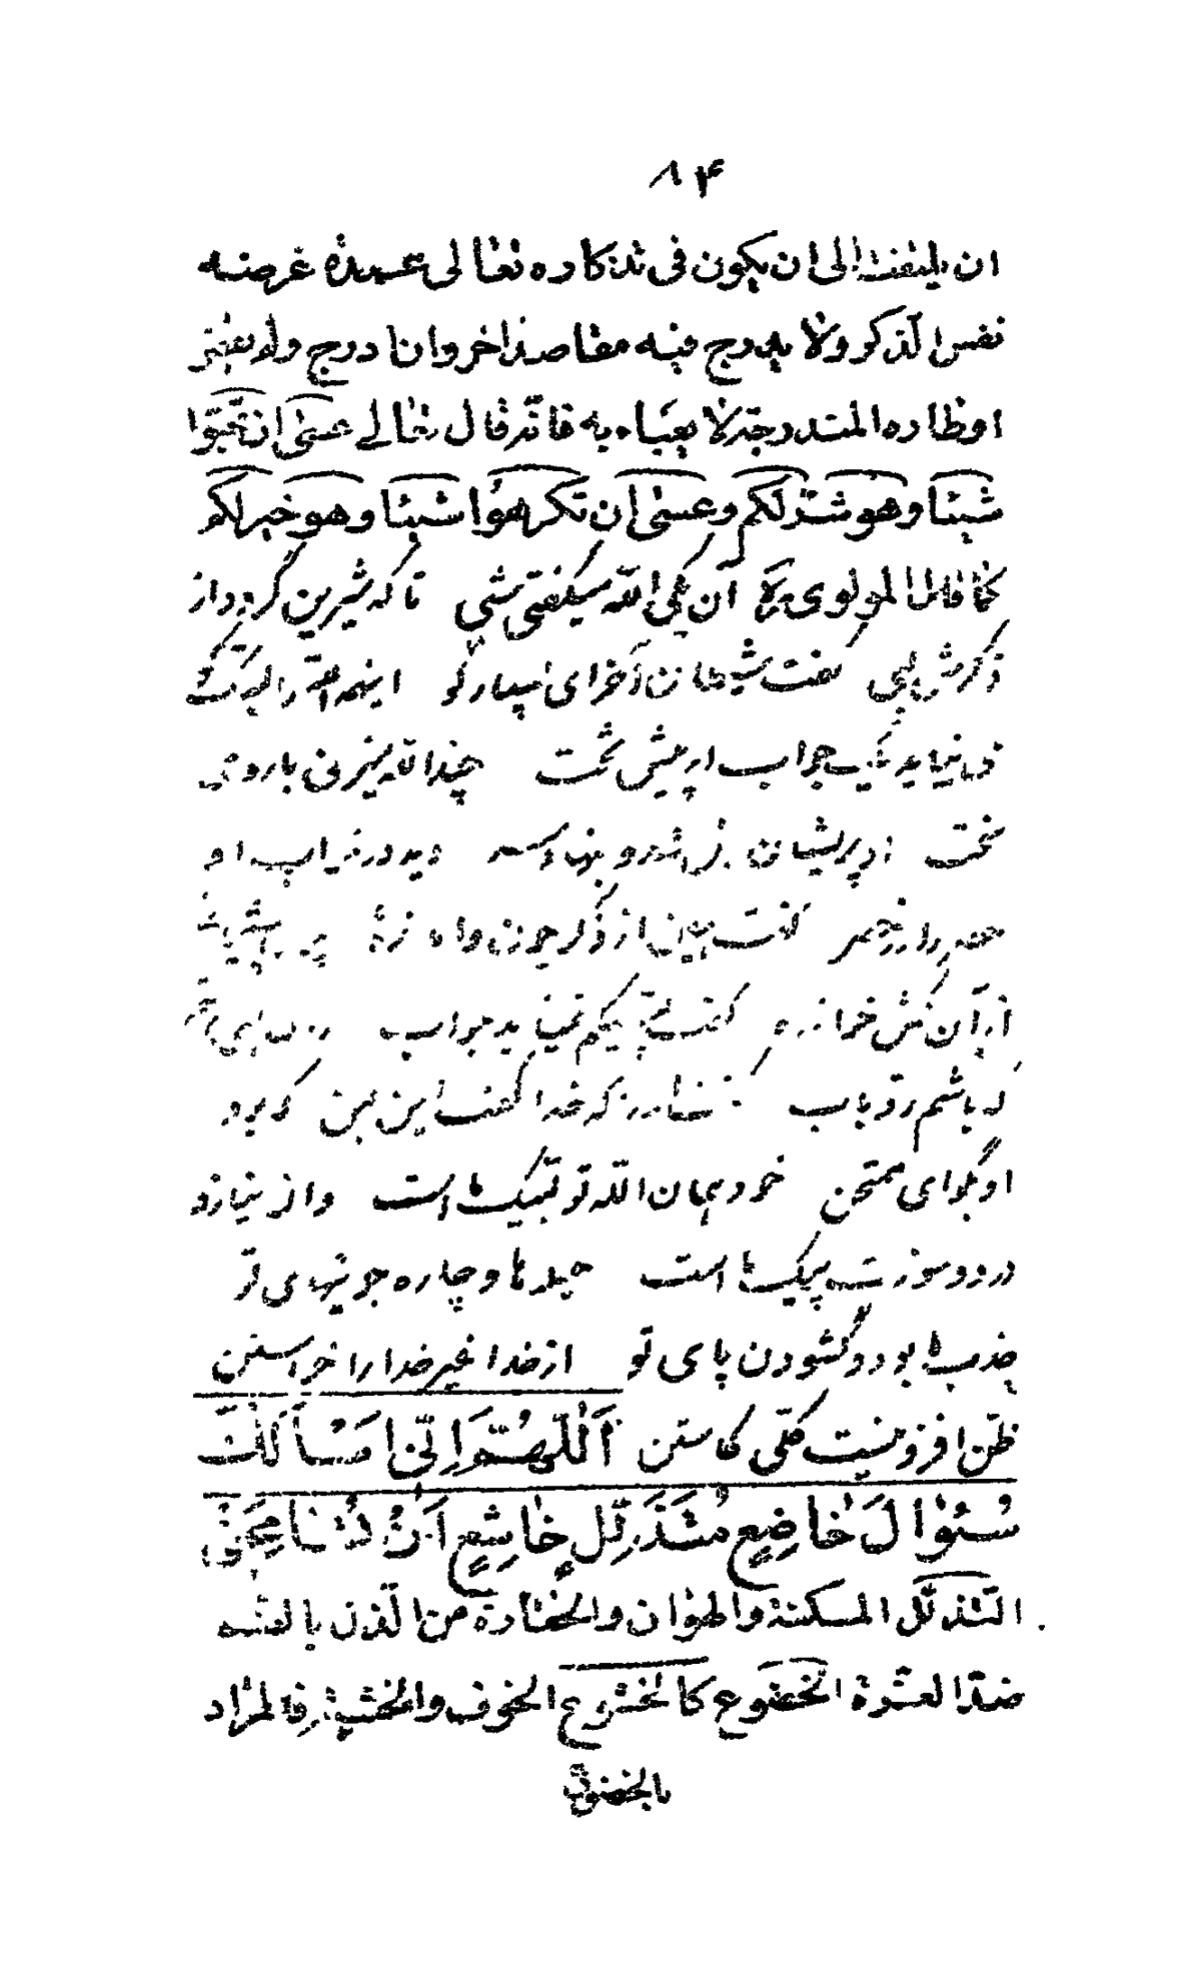 ۸۴
ان یلتفت الی ان یکون فی تذکاره تعالی عمدة غرضه
نفس الذکر ولا یدرج فیه مقاصد اخر وان ادرج ولم یعتبر
اوطاره المندرجة لا یعباء به فانّه قال تعالی عسی ان تحبّوا
شیئا وهو شرّ لکم وعسی ان تکرهوا شیئا وهو خیر لکم
کما قال المولوی آن یکی اللّه میگفتی شبی تا که شیرین گردد از
ذکرش لبی گفت شیطان آخر ای بسیارگو اینهمه اللّه را لبیک
می نیاید یک جواب از پیش تخت چند اللّه میزنی با روی
سخت او پریشان دل شد و بنهاد سر دید در خواب او
خضر را در خضر گفت هین از ذکر چون وامانده چه پشیمانی
از آن کش خوانده گفت لبیکم نمیاید جواب
که باشم ردّ باب گفت خضرش که خدا گفت این بمن که برو
او بگو ای ممتحن خود همان اللّه تو لبیک ماست وان نیاز و
درد و سوزت پیک ماست حیله ها و چاره جوئیهای تو
جذب ما بود و گشود آن پای تو از خدا غیر خدا را خواستن
ظنّ افزونیست کلّی کاستن اَللّهُمَّ اِنّی اَسْاَلُکَ
سُئوالَ خاضِعٍ مُتَذَلِّلٍ خاشِعٍ اَنْ تُسامِحَنی
التّذلّل المسکنة والهوان والحقارة من الذلّ بالضمّ
ضدّ العزّة الخضوع کالخشوع الخوف والخشیة فالمراد
بالخضوع